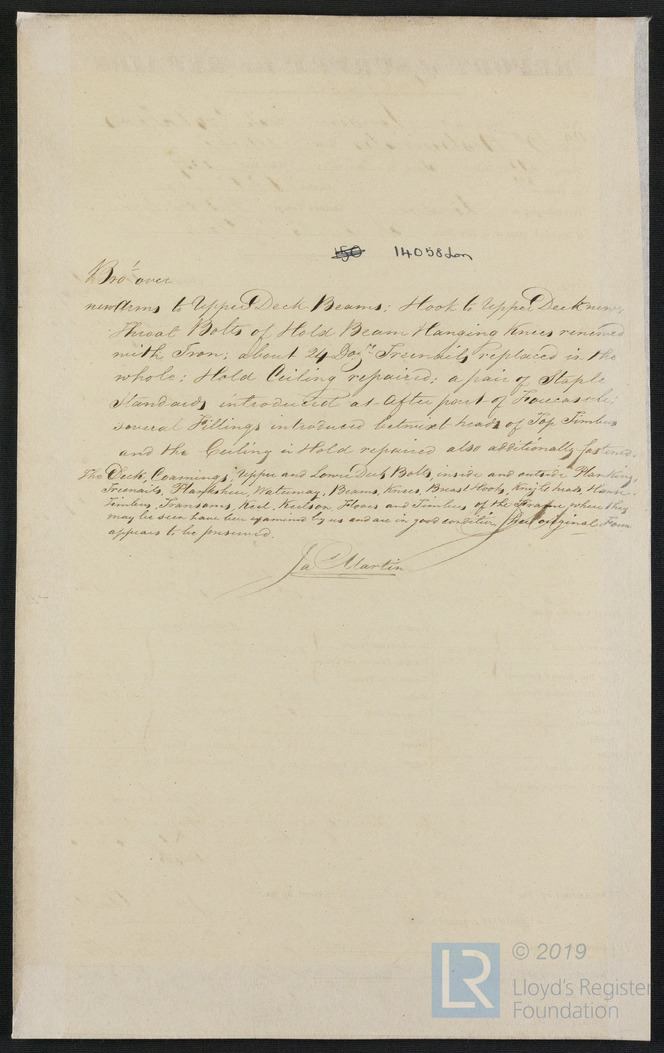 150 14058 Lon
Bro.t over
new Arms to Upper Deck Beams; Hook to Upper Deck new,
Throat Bolts of Hold Beam Hanging Knees renewed
with Iron; about 24 Doz.n Treenails replaced in the
whole; Hold Ceiling repaired; a pair of Staple
Standards introduced at After part of Forecastle;
several Fillings introduced betwixt heads of Top Timbers
and the Ceiling in Hold repaired also additionally fastened.
The Deck, Coamings, Upper and Lower Deck Bolts, inside and outside Planking,
Treenails, Planksheer, Waterway, Beams, Knees, Breast Hooks, Knight heads, Hawse
Timbers, Transoms, Keel, Keelson, Floors and Timbers of the Frame where they
may be seen have been examined by us and are in good condition. Her original Form
appears to be preserved.
Ja.s Martin
LR
© 2019
Lloyd's Register
Foundation